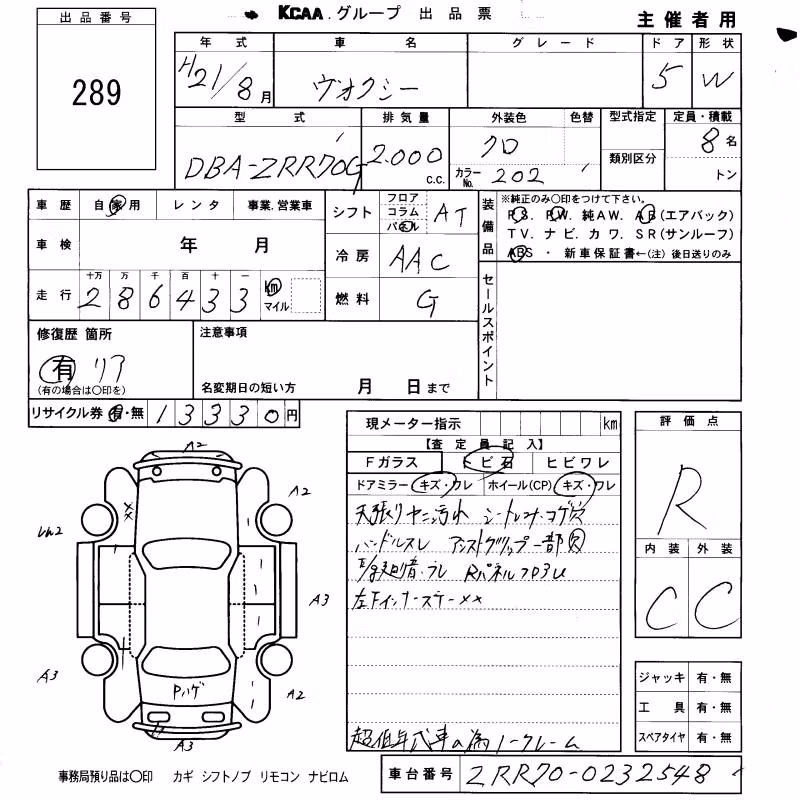 KCAA.グループ 出品票
主催者用
出品番号
289
年式 車名 グレード ドア 形状
H21/8月 ヴォクシー 5 W
型式 排気量 外装色 色替 型式指定 定員・積載
DBA-ZRR70G 2.000 c.c. クロ 8名
カラーNo. 202 類別区分 トン
車歴 自家用 レンタ 事業、営業車
シフト フロア コラム パネル AT
装備品 ※純正のみ〇印をつけて下さい。
P.S. P.W. 純AW. A.B(エアバック)
TV. ナビ. カワ. SR(サンルーフ)
ABS ・ 新車保証書←(注) 後日送りのみ
車検 年 月
冷房 AAC
走行 十万 万 千 百 十 一
286433 km マイル
燃料 G
セールスポイント
修復歴 箇所
有 リア
(有の場合は〇印を)
注意事項
名変期日の短い方 月 日まで
リサイクル券 有・無 13330円
現メーター指示 km
【査定員記入】
Fガラス トビ石 ヒビワレ
ドアミラー キズ・ワレ ホイール(CP) キズ・ワレ
天張りヤニ汚れ シートレカナ・コゲ穴
ハンドルスレ アシストグリップ一部欠
Rパネルフロアし
左Fインナーステー××
超低年式車の為ノークレーム
評価点
R
内装 外装
C C
ジャッキ 有・無
工具 有・無
スペアタイヤ 有・無
A2
××
A2
A3
A3
A2
Pハゲ
A3
事務局預り品は〇印 カギ シフトノブ リモコン ナビロム
車台番号 ZRR70-0232548